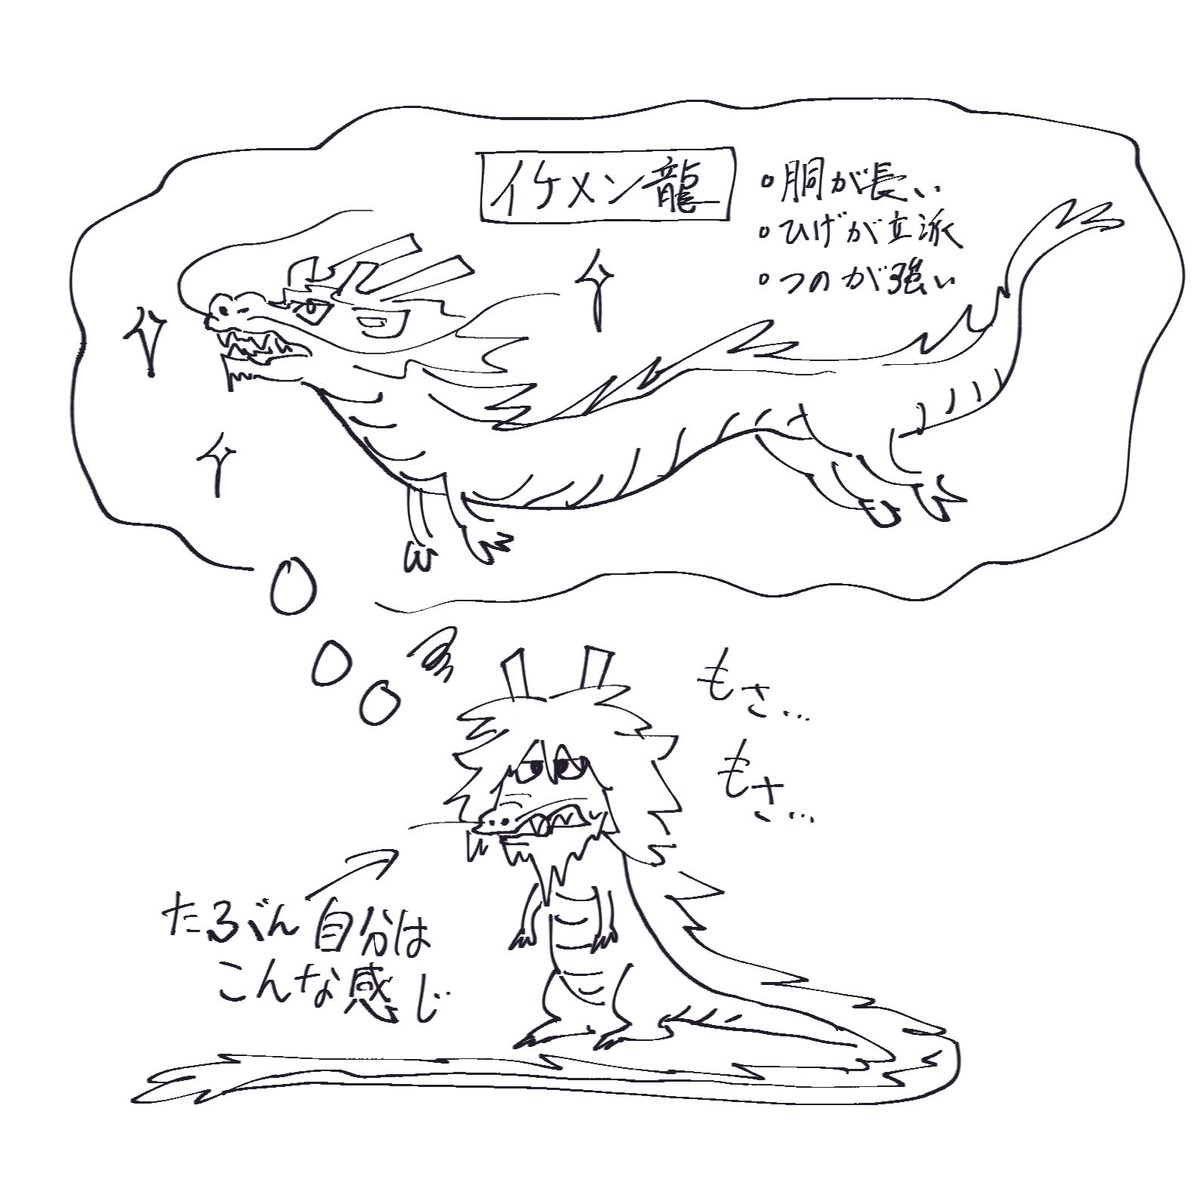 イケメン龍
・胴が長い
・ひげが立派
・つのが強い
もさ…
もさ…
たぶん自分は
こんな感じ